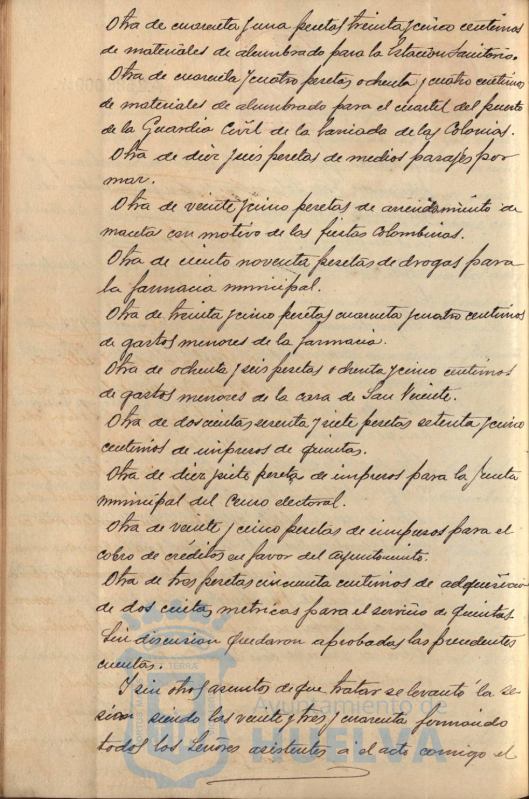 Otra de cuarenta y una pesetas treinta y cinco centimos
de materiales de alumbrado para la Estacion Sanitaria.
Otra de cuarenta y cuatro pesetas ochenta y cuatro centimos
de materiales de alumbrado para el cuartel del puerto
de la Guardia Civil de la barriada de las Colonias.
Otra de diez y seis pesetas de medios pasajes por
mar.
Otra de veinte y cinco pesetas de arrendamiento de
macetas con motivo de las fiestas Colombinas.
Otra de ciento noventa pesetas de drogas para
la farmacia municipal.
Otra de treinta y cinco pesetas cuarenta y cuatro centimos
de gastos menores de la farmacia.
Otra de ochenta y seis pesetas ochenta y cinco centimos
de gastos menores de la casa de San Vicente.
Otra de doscientas sesenta y siete pesetas setenta y cinco
centimos de impresos de quintas.
Otra de diez y siete pesetas de impresos para la Junta
municipal del Censo electoral.
Otra de veinte y cinco pesetas de impresos para el
cobro de créditos en favor del Ayuntamiento.
Otra de tres pesetas cincuenta centimos de adquisicion
de dos cintas metricas para el servicio de quintas.
Sin discusion quedaron aprobadas las precedentes
cuentas.
Y sin otros asuntos de que tratar se levantó la se-
sion siendo las veinte y tres y cuarenta firmando
todos los Señores asistentes á el acto conmigo el
Ayuntamiento de
HUELVA